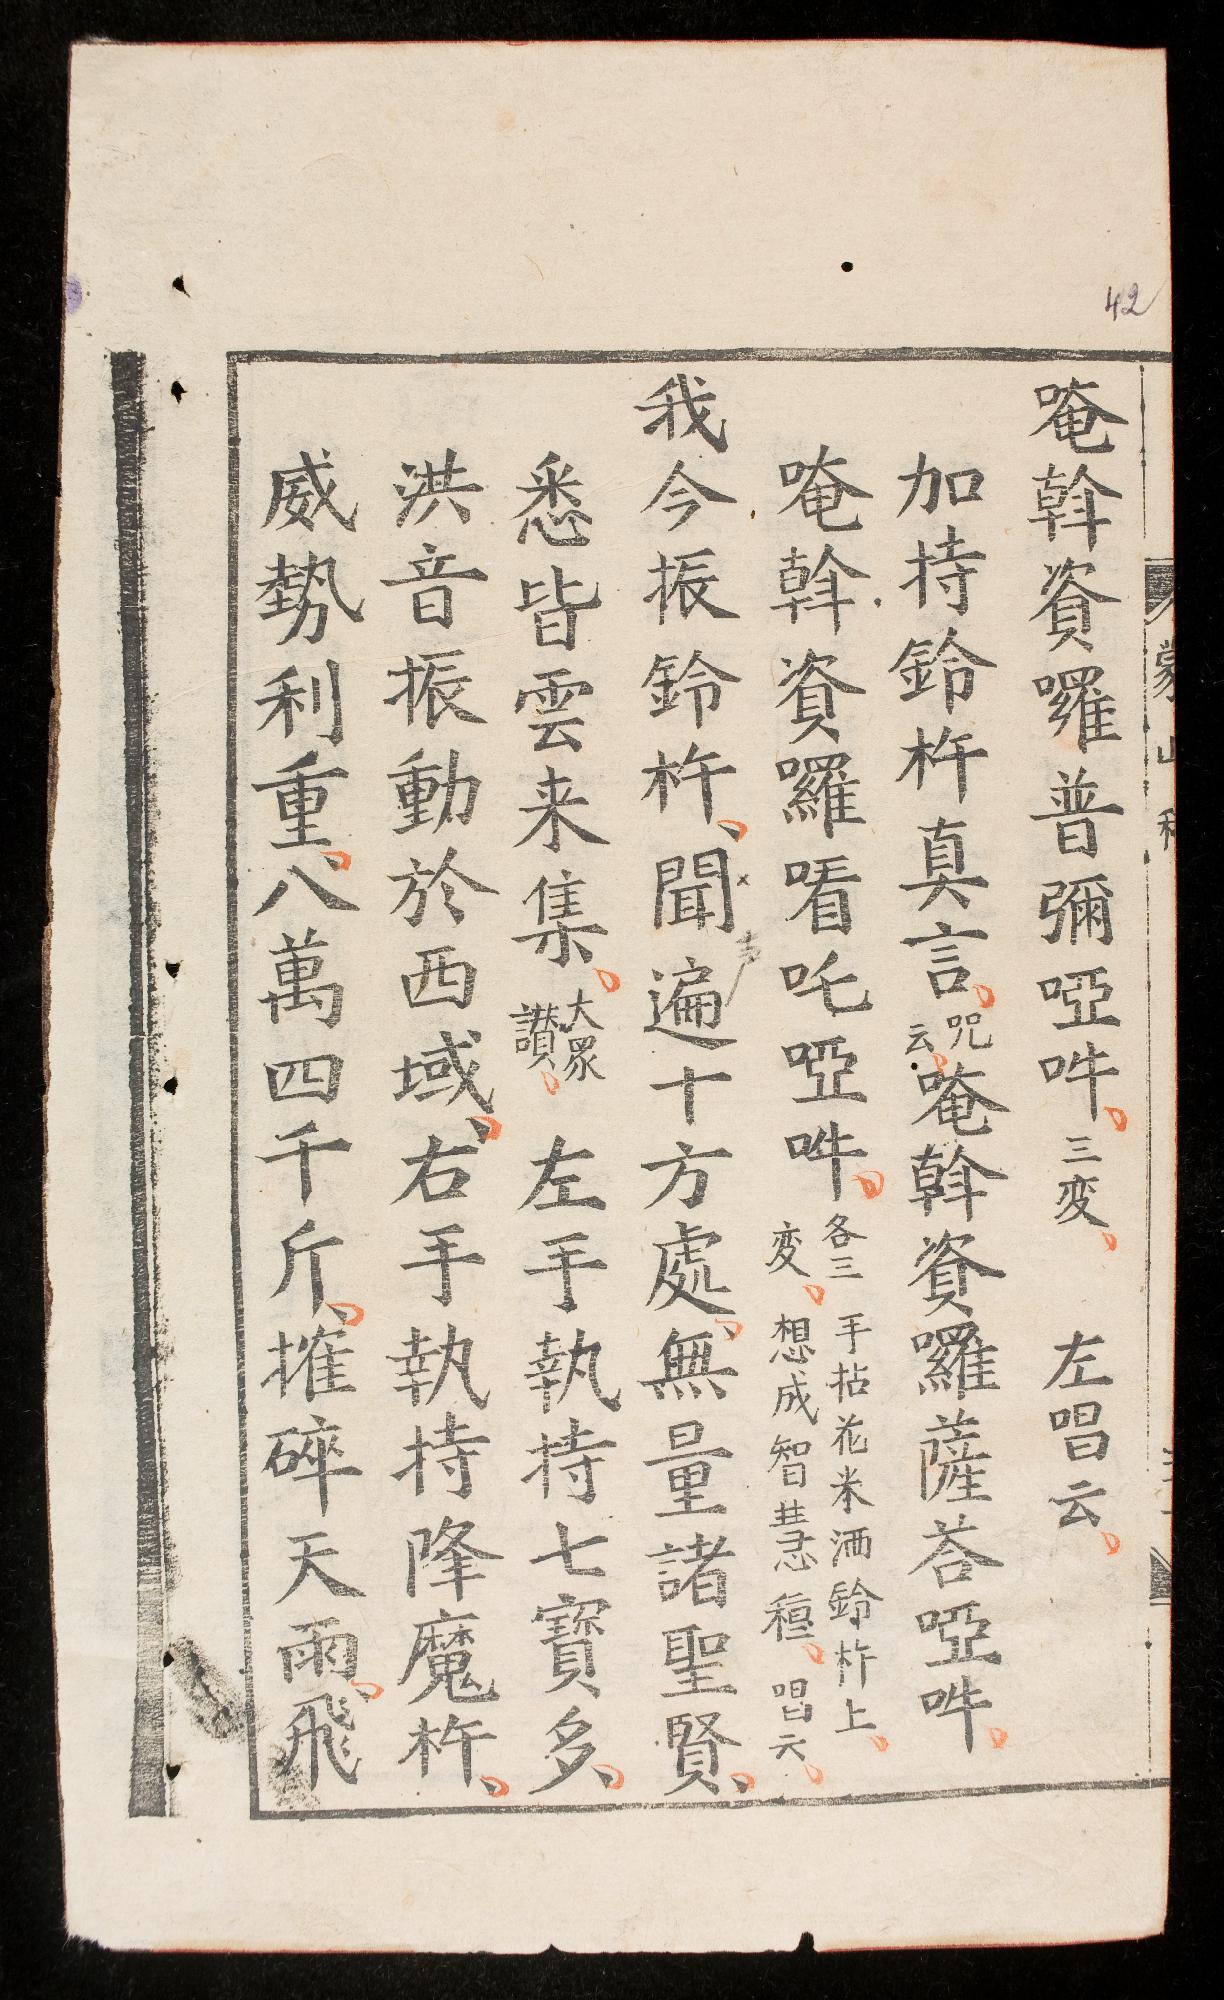 42
唵斡資囉普彌啞吽、三変、左唱云、
加持鈴杵真言、咒云、唵斡資囉薩荅啞吽、
唵斡資囉㖷吒啞吽、各三変、手拈花米洒鈴杵上、想成智慧種、唱云、
我今振鈴杵、聞遍十方處、無量諸聖賢、
悉皆雲来集、大眾讃、左手執持七寳多、
洪音振動於西域、右手執持降魔杵、
威勢利重、八萬四千斤、摧碎天雨、飛